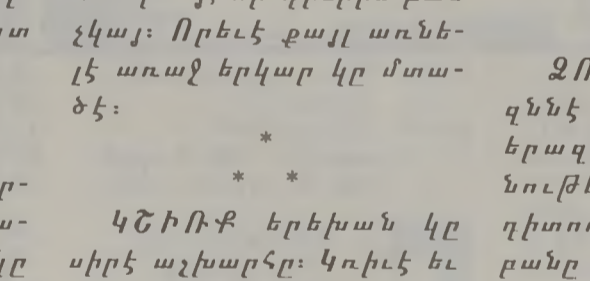 չկայ։ Որեւէ քայլ առնե-
լէ առաջ երկար կը մտա-
ծէ։
*
* *
ԿՇԻՌՔ երեխան կը
սիրէ աշխարհը։ Կռիւէ եւ
զննէ
երազ
նութե
դիտո
բանը